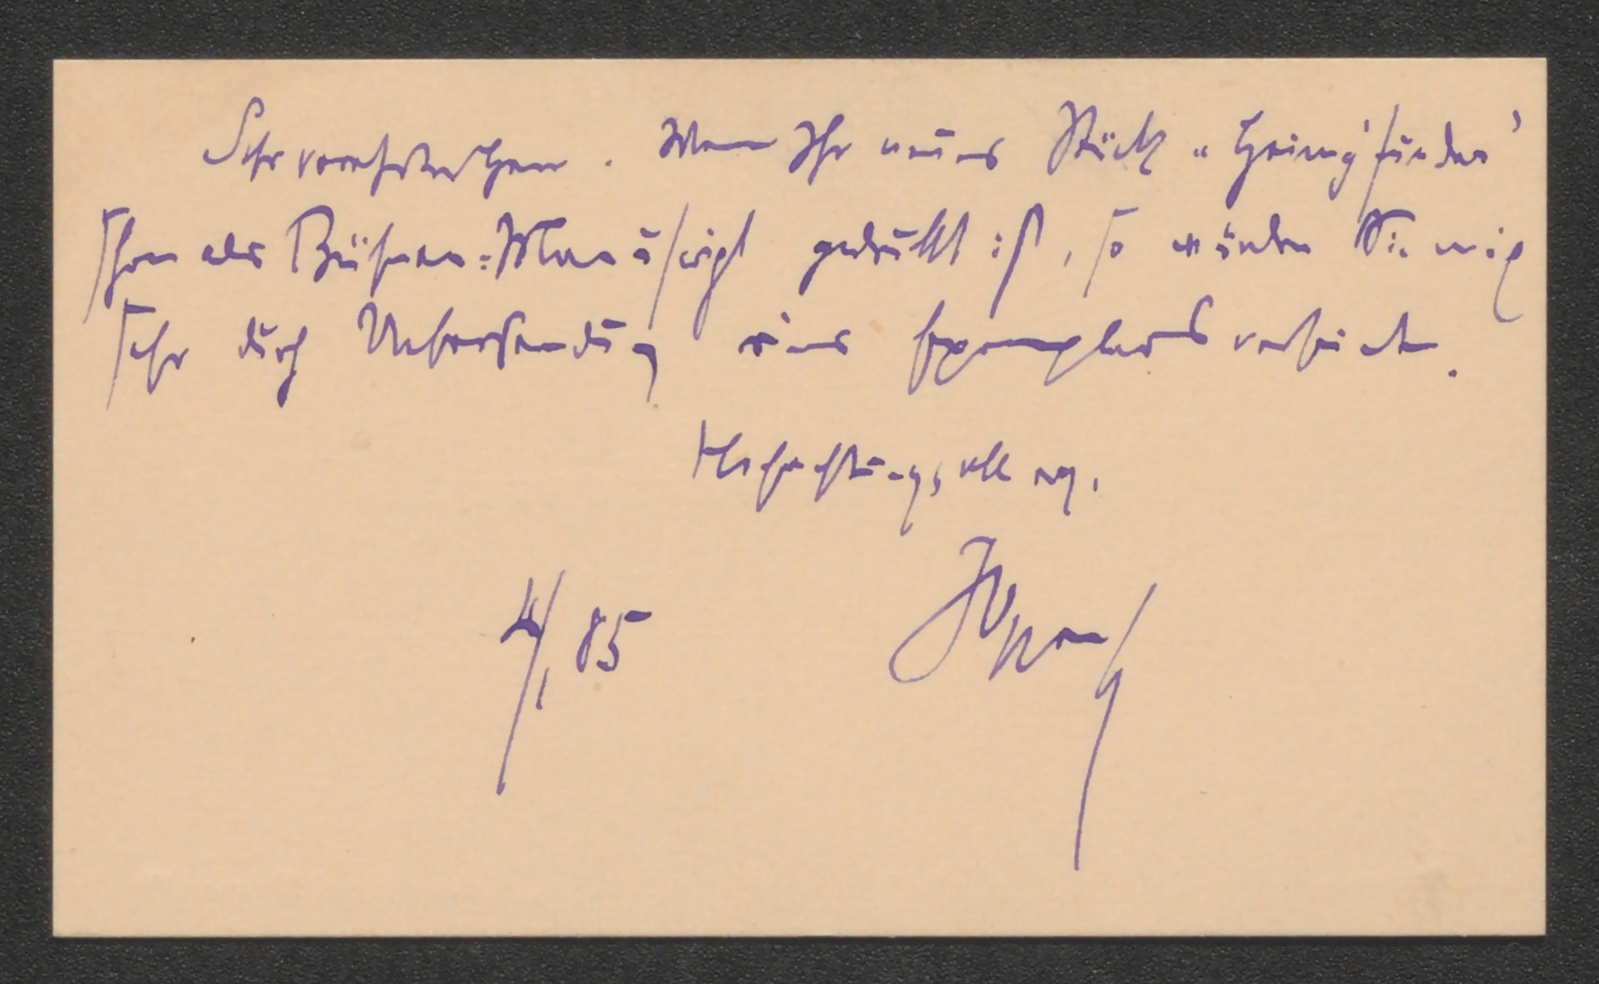 Sehr verehrter Herr. Wenn Ihr neues Stück „Heimg'funden"
schon als Bühnen-Manuscript gedruckt ist, so würden Sie mich
sehr durch Uebersendung eines Exemplares verbinden.
Hochachtungsvoll erg.
4/1 85